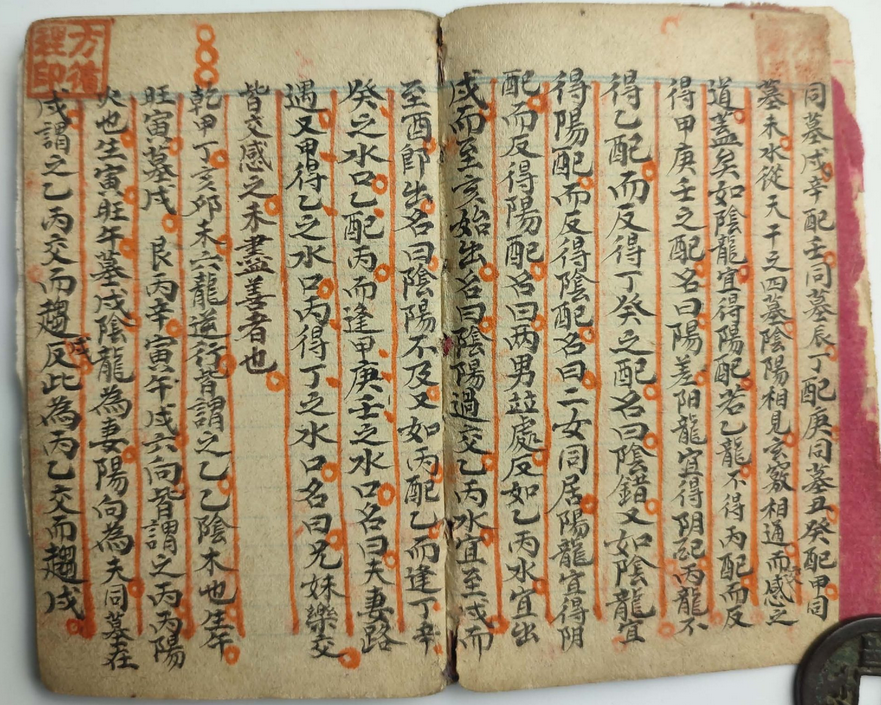 同墓戌辛配壬同墓辰丁配庚同墓丑癸配甲同
墓未水從天干之四墓陰陽相見玄竅相通而感之
交
道蓋矣如陰龍宜得陽配若乙龍不得丙配而反
得甲庚壬之配名曰陽差阳龍宜得阴配丙龍不
得乙配而反得丁癸之配名曰陰錯又如陰龍宜
得陽配而反得陰配名曰二女同居陽龍宜得阴
配而反得陽配名曰两男並處反如乙丙水宜出
戌而至亥始出名曰陰陽過交乙丙水宜至戌而
至酉即出名曰陰陽不及又如丙配乙而逢丁辛
癸之水口乙配丙而逢甲庚壬之水口名曰夫妻路
遇又甲得乙之水口丙得丁之水口名曰兄妹樂交
皆交感之未盡善者也
乾甲丁亥卯未六龍逆行皆謂之乙乙陰木也生午
旺寅墓戌 艮丙辛寅午戌六向皆謂之丙丙陽
火也生寅旺午墓戌陰龍為妻陽向為夫同墓在
戌謂之乙丙交而趨戌反此為丙乙交而趨戌
方脩
程印